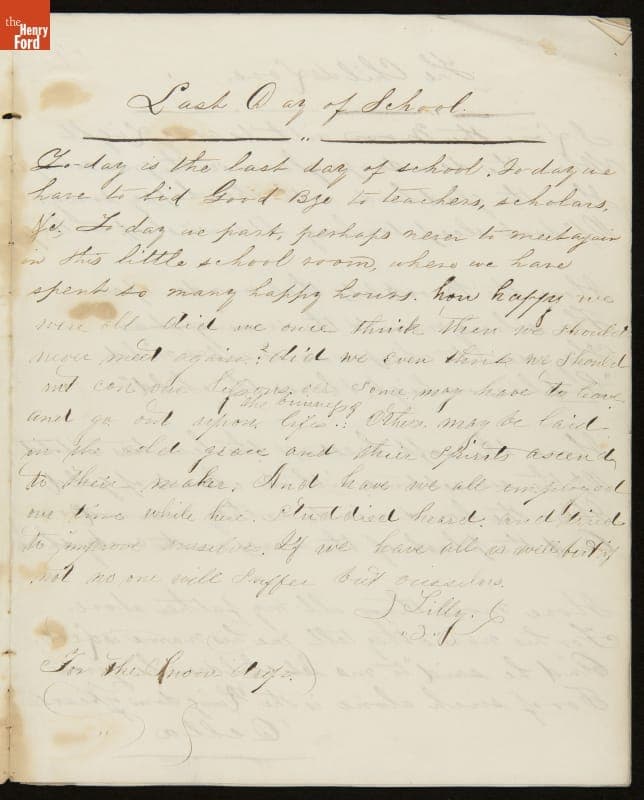 the
Henry
Ford
Last Day of School.
To-day is the last day of school. To day we
have to bid Good Bye to teachers, scholars,
&c. To day we part, perhaps never to meet again
in this little school room, where we have
spent so many happy hours. how happy we
were all did we once think then we should
never meet again? did we even think we should
not con our lessons some may have to leave
and go out upon life's Others may be laid
in the cold grave and their spirits ascend
to their maker. And have we all employed
our time while here. Studdied heard. and tried
to improve ourselve. If we have all is well but if
not no one will suffer but ourselves.
Lilly.
For the Snow drop.